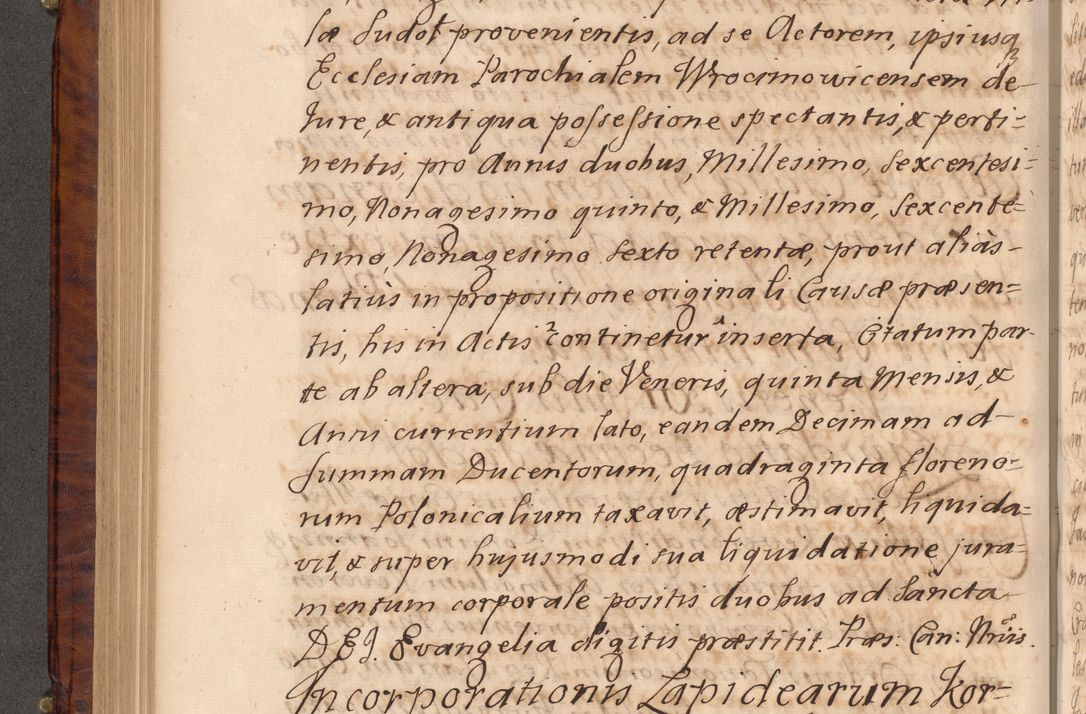 sæ Sudoł provenientis, ad se Actorem, ipsiusq₃
Ecclesiam Parochialem Wrocimowicensem de
Jure, & antiqua possessione spectantis, & perti=
nentis, pro Annis duobus, Millesimo, Sexcentesi=
mo, Nonagesimo quinto, & Millesimo, Sexcente=
simo, Nonagesimo Sexto retentæ, prout aliàs-
latiùs in propositione originali Causæ præsen=
tis, his in Actis continetur inserta, Citatum par-
te ab altera, sub die Veneris, quinta Mensis, &
Anni currentium lato, eandem Decimam ad-
Summam Ducentorum, quadraginta floreno=
rum Polonicalium taxavit, æstimavit, liquida=
vit, & super hujusmodi sua liquidatione jura=
mentum corporale positis duobus ad Sancta
D E J. Evangelia digitis præstitit. Præs: Can: Nrūs.
Incorporationis Lapidearum Kor=